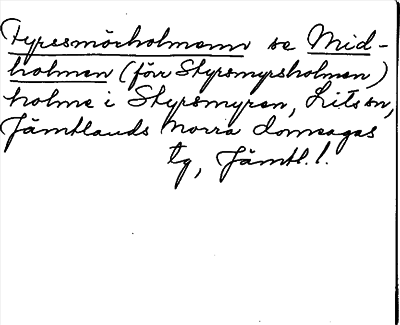 Tyresmörholmenn se Mid-
holmen (för Styrsmyrsholmen)
holme i Styrsmyren, Lits sn,
Jämtlands Norra domsagas
tg, Jämtl. l.